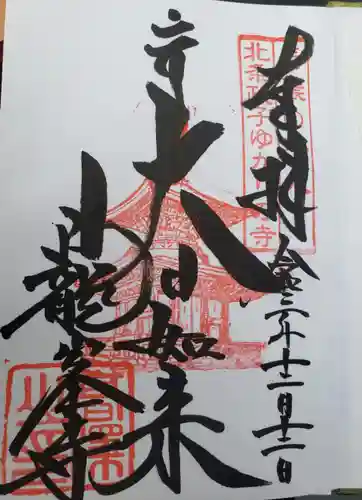 奉拝
北条政子ゆかりの寺
令三年十二月十二日
大日如来
日龍峯寺